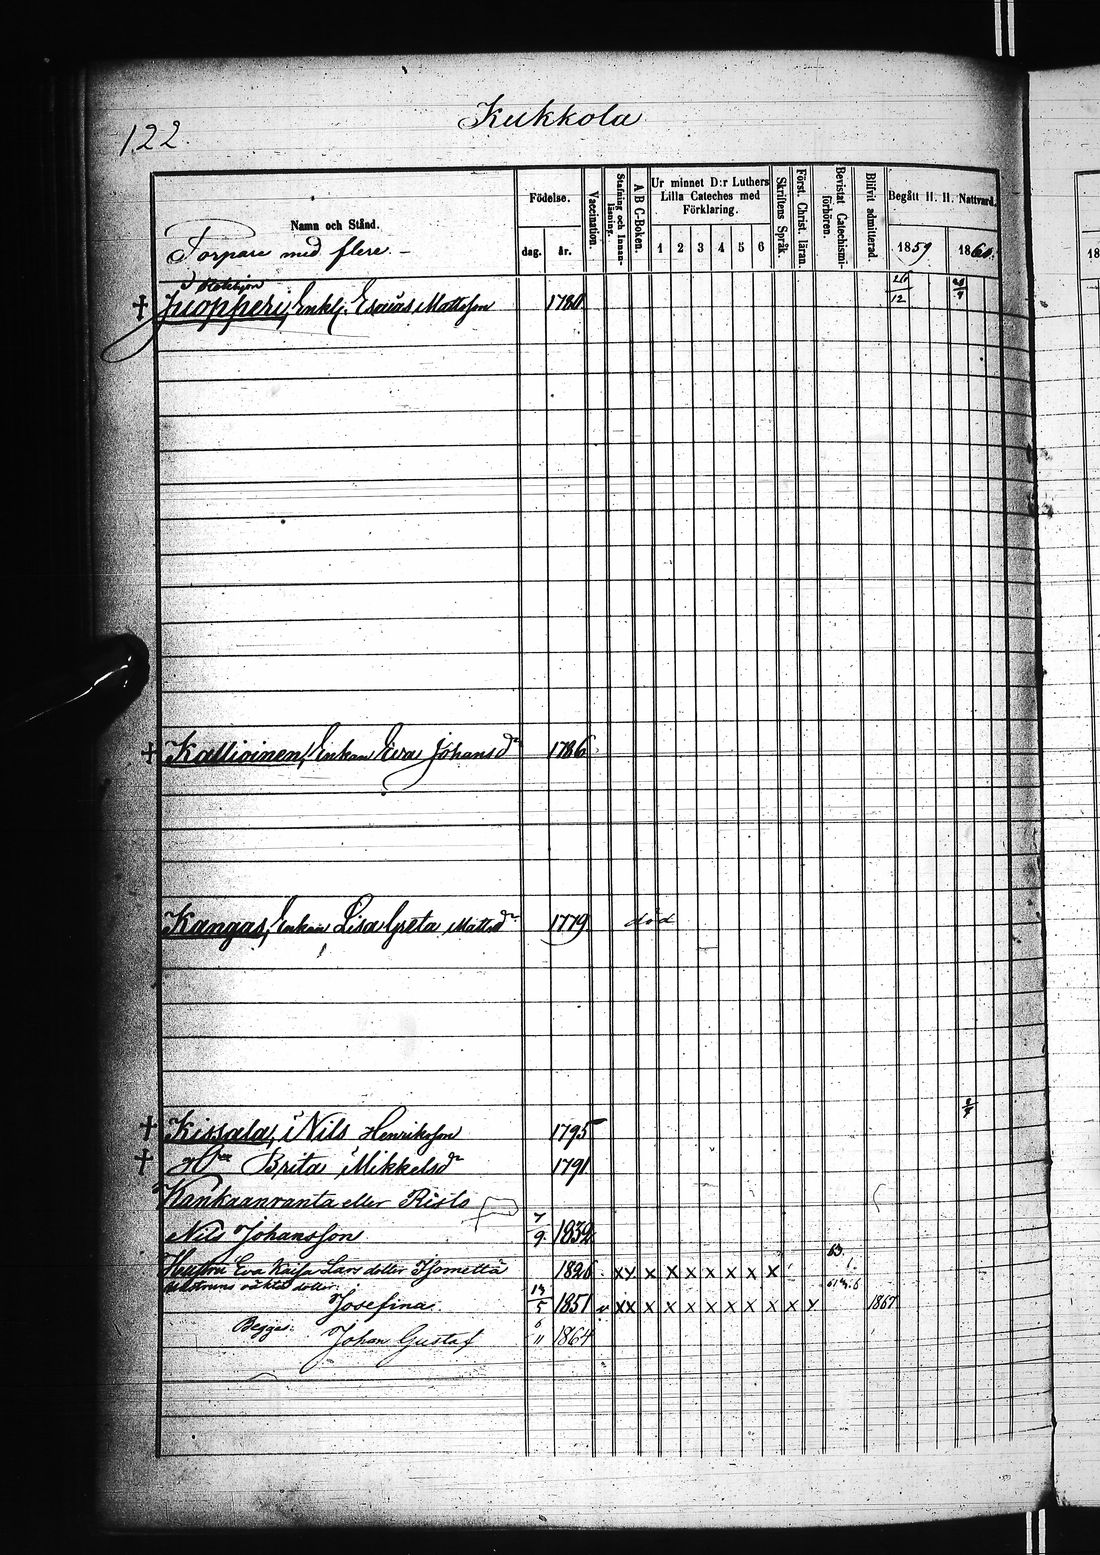 Kukkola
122.
Namn och Stånd.
Födelse.
dag.
år.
Vaccination.
Stafning och Innan-läsning.
A B C-Boken.
Ur minnet D:r Luthers
Lilla Cateches med
Förklaring.
1 2 3 4 5 6
Skriftens Språk.
Först. Christ. läran.
Bevistat Catechismi-förhören.
Blifvit admitterad.
Begått H. H. Nattvard.
1859 1860.
Torpare med flere. –
† Juopperi, Enkl. Esaias Mattsson 1780 26/12
† Kallioinen, Enkan Eva Johansdr 1786
Kangas, Enkan Lisa Greta Mattsdr 1779 död
† Kissala, Nils Henriksson 1795
† Hu Brita Mikkelsdr 1791
Kankaanranta eller Risls
Nils Johansson 7/9 1839
63
Hustru Eva Kajsa Lars dotter Tjometta 1826 x x x x x x x x x
Hustruns oäkta dotter:
Josefina 13/5 1851 v x x x x x x x x x x x 1867
Begges: Johan Gustaf 6/11 1864